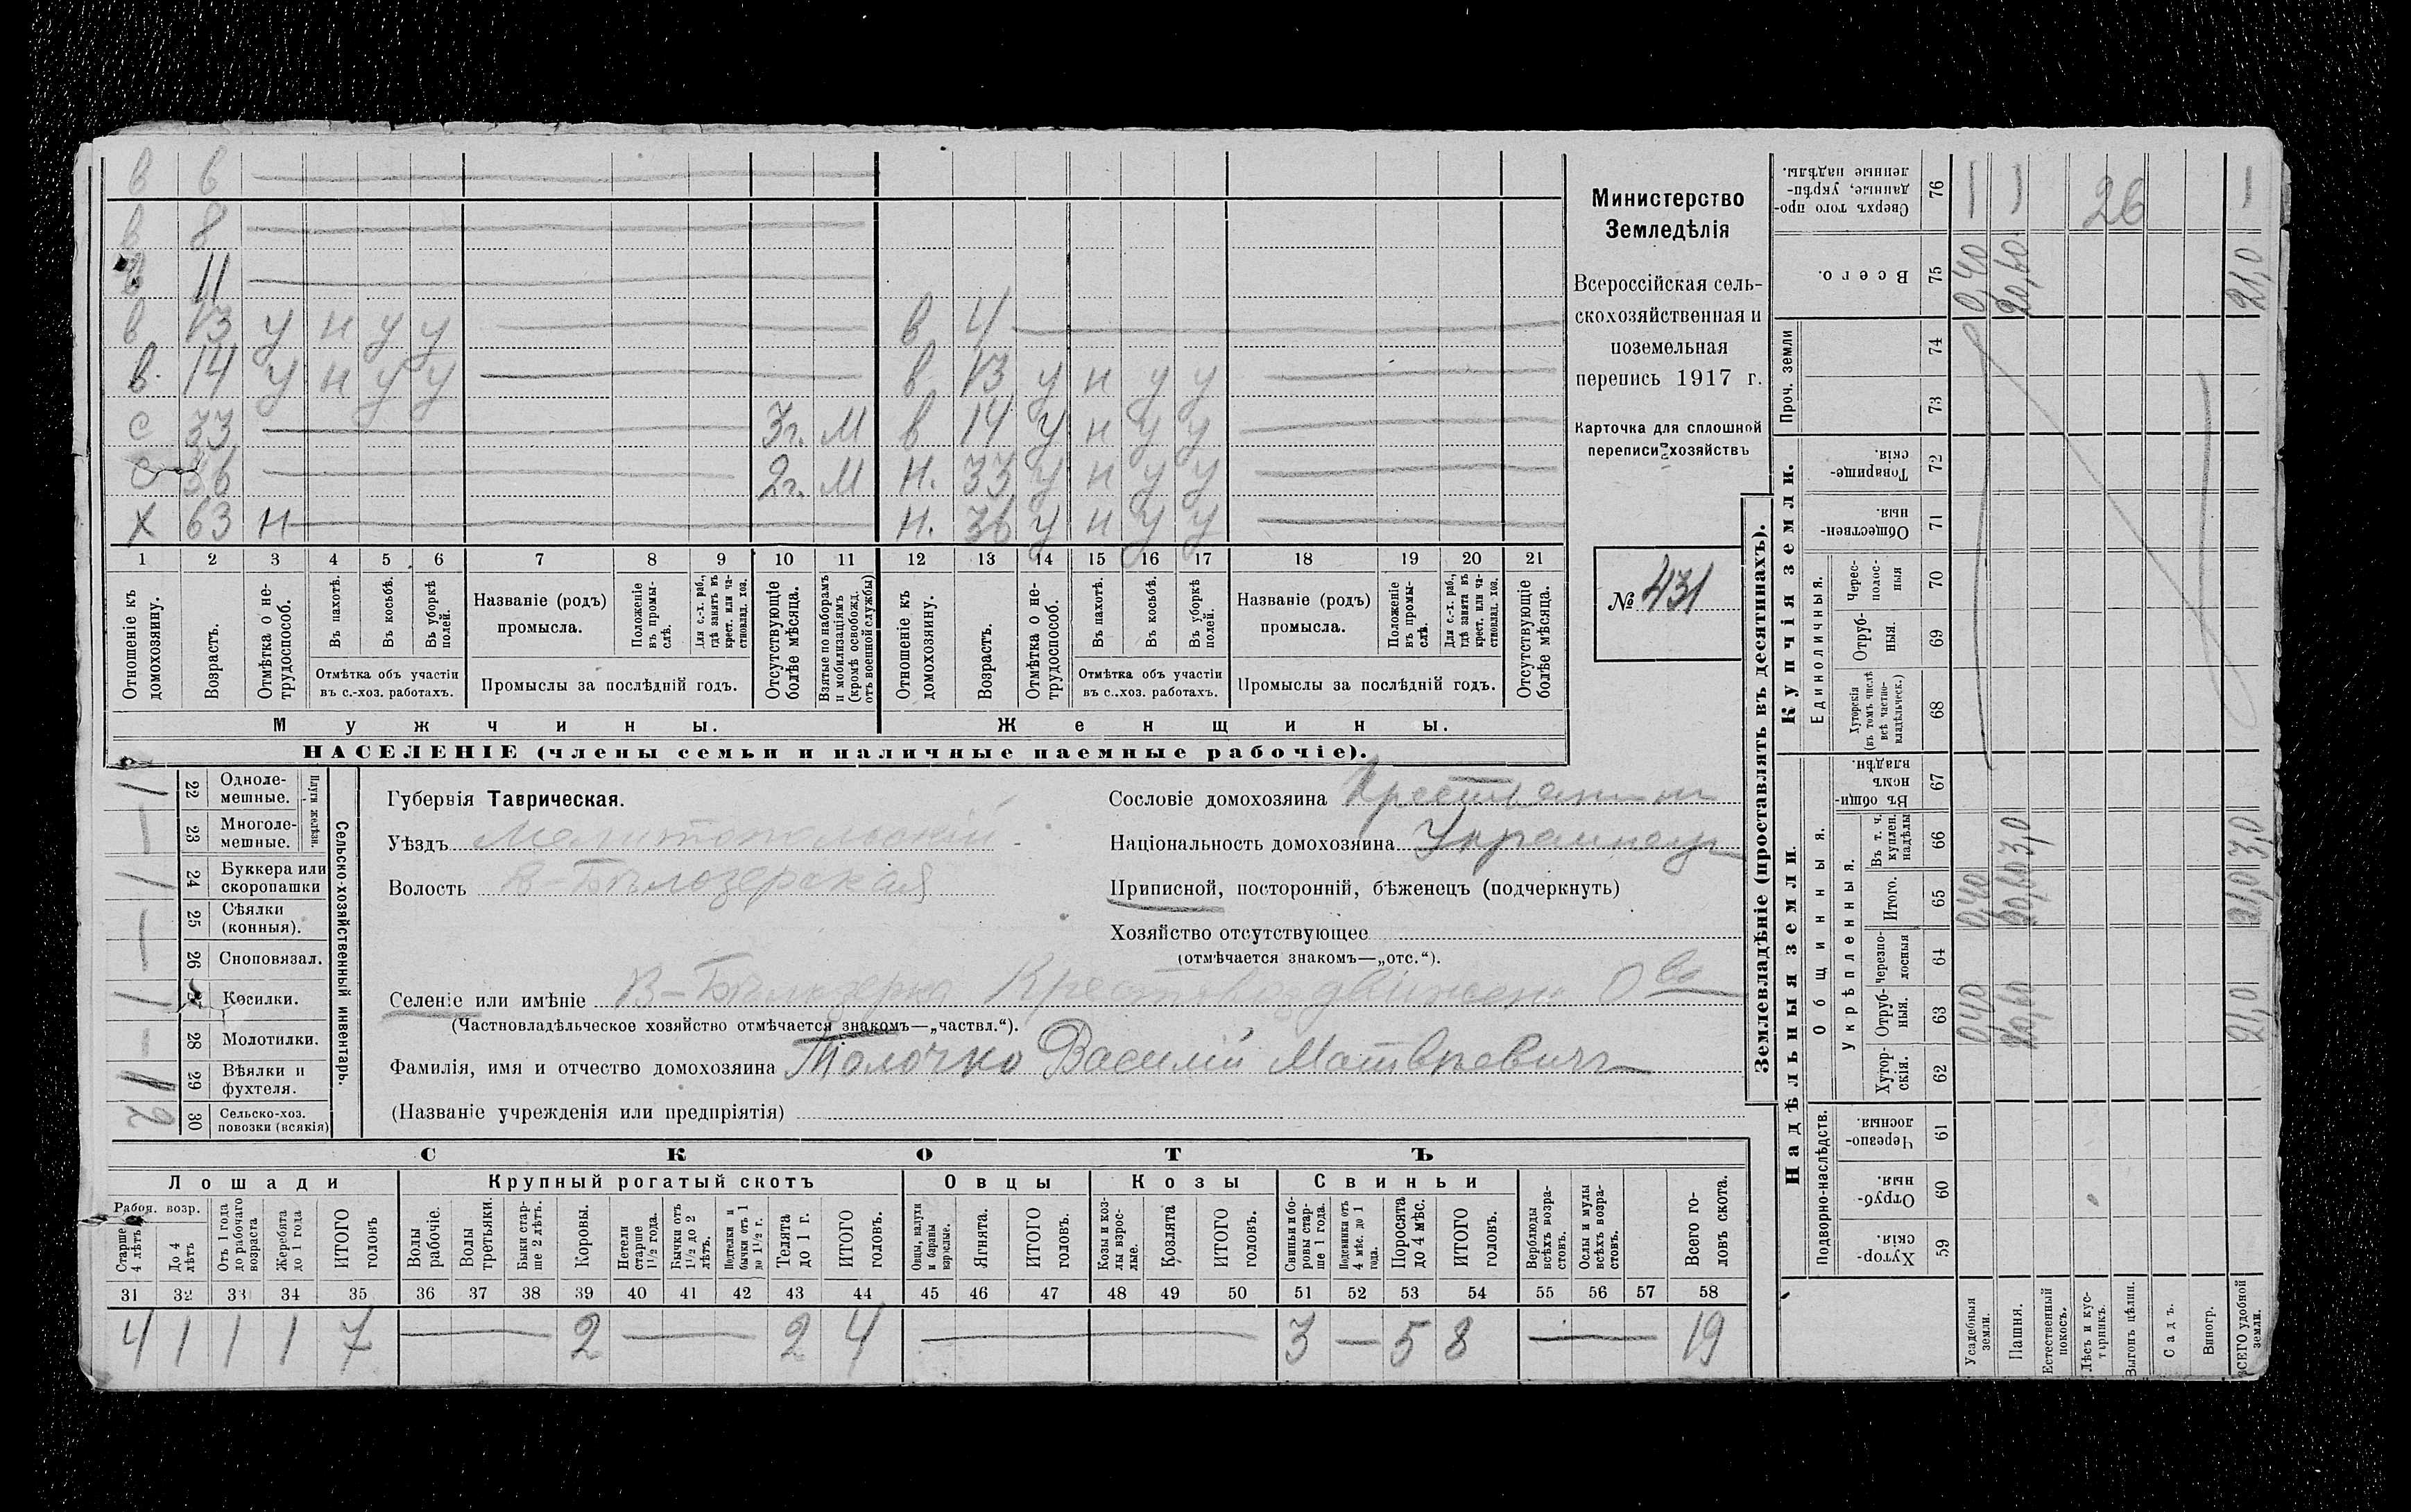 в 6
в 8
в 11
в 13 у н у у в 4
в. 14 у н у у в 13 у н у у
с 33 3г. М в 14 у н у у
с 36 2г. М н. 33 у н у у
х 63 н н. 36 у н у у
1 2 3 4 5 6 7 8 9 10 11 12 13 14 15 16 17 18 19 20 21
Отношеніе къ домохозяину.
Возрастъ.
Отмѣтка о не-трудоспособ.
Въ пахотѣ.
Въ косьбѣ.
Въ уборкѣ полей.
Отмѣтка объ участіи
въ с.-хоз. работахъ.
Названіе (родъ)
промысла.
Положеніе въ промы-слѣ.
Для с.-х. раб., гдѣ занятъ въ крест. или ча-стновлад. хоз.
Промыслы за послѣдній годъ.
Отсутствующіе болѣе мѣсяца.
Взятые по наборамъ и мобилизаціямъ (кромѣ освобожд. отъ военной службы)
Отношеніе къ домохозяину.
Возрастъ.
Отмѣтка о не-трудоспособ.
Въ пахотѣ.
Въ косьбѣ.
Въ уборкѣ полей.
Отмѣтка объ участіи
въ с.-хоз. работахъ.
Названіе (родъ)
промысла.
Положеніе въ промы-слѣ.
Для с.-х. раб., гдѣ занята въ крест. или ча-стновлад. хоз.
Промыслы за послѣдній годъ.
Отсутствующіе болѣе мѣсяца.
Мужчины. Женщины.
НАСЕЛЕНІЕ (члены семьи и наличные наемные рабочіе).
Министерство
Земледѣлія
Всероссійская сель-
скохозяйственная и
поземельная
перепись 1917 г.
Карточка для сплошной
переписи хозяйствъ
№ 431
Сельско-хозяйственный инвентарь.
Плуги желѣзн.
1 22 Одноле-мешные.
— 23 Многоле-мешные.
1 24 Буккера или скоропашки
— 25 Сѣялки (конныя).
— 26 Сноповязал.
1 27 Косилки.
— 28 Молотилки.
1 29 Вѣялки и фухтеля.
2 30 Сельско-хоз. повозки (всякія)
Губернія Таврическая.
Уѣздъ Мелитопольскій
Волость В-Бѣлозерская
Сословіе домохозяина Крестьянин
Національность домохозяина Украинец
Приписной, посторонній, бѣженецъ (подчеркнуть)
Хозяйство отсутствующее
(отмѣчается знакомъ—„отс.“).
Селеніе или имѣніе В-Бѣлозерка Крестовоздвижен О ва
(Частновладѣльческое хозяйство отмѣчается знакомъ—„частвл.“).
Фамилія, имя и отчество домохозяина Толочко Василій Матвѣевич
(Названіе учрежденія или предпріятія)
СКОТЪ
Лошади Крупный рогатый скотъ Овцы Козы Свиньи
Рабоч. возр.
Старше 4 лѣтъ
До 4 лѣтъ
Отъ 1 года до рабочаго возраста
Жеребята до 1 года
ИТОГО головъ
Волы рабочіе.
Волы третьяки.
Быки стар-ше 2 лѣтъ.
Коровы.
Нетели старше 1½ года.
Бычки отъ 1½ до 2 лѣтъ.
Подтелки и бычки отъ 1 до 1½ г.
Телята до 1 г.
ИТОГО головъ.
Овцы, валухи и бараны взрослые.
Ягнята.
ИТОГО головъ.
Козы и коз-лы взрос-лые.
Козлята
ИТОГО головъ.
Свиньи и бо-ровы стар-ше 1 года.
Подсвинки отъ 4 мѣс. до 1 года.
Поросята до 4 мѣс.
ИТОГО головъ.
Верблюды всѣхъ возра-стовъ.
Ослы и мулы всѣхъ возра-стовъ.
Всего го-ловъ скота.
31 32 33 34 35 36 37 38 39 40 41 42 43 44 45 46 47 48 49 50 51 52 53 54 55 56 57 58
4 1 1 1 7 — 2 — 2 4 — 3 — 5 8 — 19
Землевладѣніе (проставлять въ десятинахъ).
Надѣльныя земли. Купчія земли. Проч. земли
Подворно-наслѣдств. Общинныя. Укрѣпленныя. Единоличныя.
Сверхъ того про-данные, укрѣп-ленные надѣлы. 76 — — 26 —
Всего. 75 0,40 20,60 21,0
74
73
Товарище-скія. 72
Обществен-ныя. 71
Черес-полос-ныя 70
Отруб-ныя. 69
Хуторскія (въ томъ числѣ всѣ частно-владѣльческ.) 68
Въ общи-номъ владѣн. 67
Въ т. ч. куплен. надѣлы 66 3,0 3,0
Итого. 65 0,40 20,60 21,0
Черезпо-лосныя 64
Отруб-ныя. 63 0,40 20,60 21,0
Хутор-скія. 62
Черезпо-лосныя. 61
Отруб-ныя. 60
Хутор-скія. 59
Усадебныя земли.
Пашня.
Естественный покосъ.
Лѣсъ и кус-тарникъ.
Выгонъ цѣлин.
Садъ.
Виногр.
ВСЕГО удобной земли.